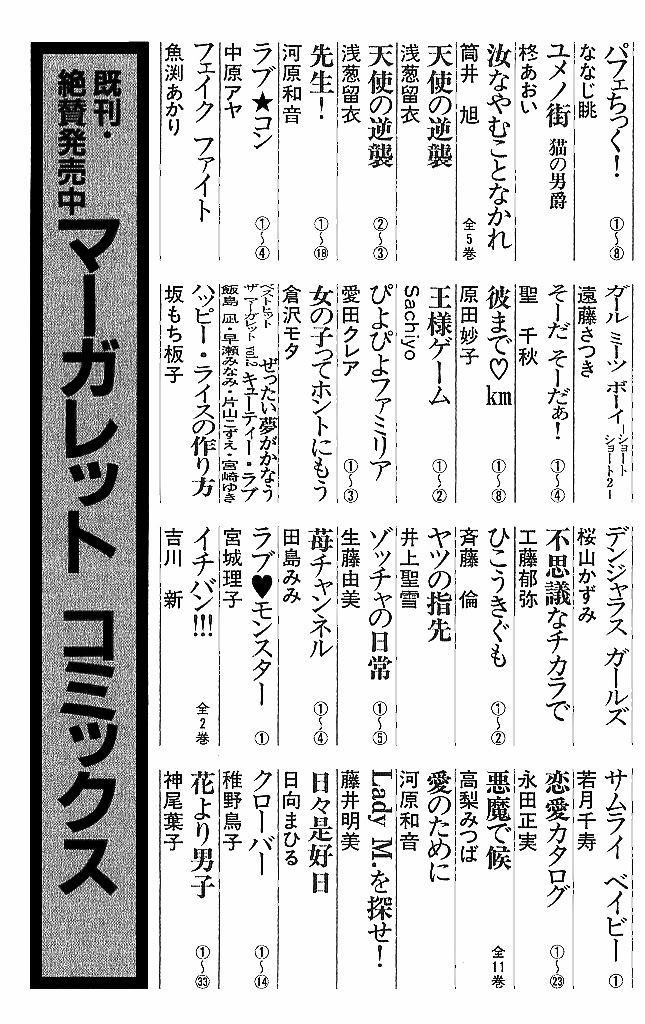 パフェちっく！ ①〜⑧
ななじ眺
ユメノ街 猫の男爵
柊あおい
汝なやむことなかれ 全5巻
筒井 旭
天使の逆襲
浅葱留衣
天使の逆襲 ②〜③
浅葱留衣
先生！ ①〜⑱
河原和音
ラブ★コン ①〜④
中原アヤ
フェイク ファイト
魚渕あかり
ガール ミーツ ボーイ ―ショートショート2―
遠藤さつき
そーだ そーだぁ！ ①〜④
聖 千秋
彼まで♡km ①〜⑧
原田妙子
王様ゲーム ①〜②
Sachiyo
ぴよぴよファミリア ①〜③
愛田クレア
女の子ってホントにもう
倉沢モタ
ベストヒット ザ マーガレット ぜったい夢がかなう キューティー・ラブ
飯島 凪・早瀬みなみ・片山こずえ・宮崎ゆき
ハッピー・ライスの作り方
坂もち板子
デンジャラス ガールズ
桜山かずみ
不思議なチカラで
工藤郁弥
ひこうきぐも ①〜②
斉藤 倫
ヤツの指先
井上聖雪
ゾッチャの日常 ①〜⑤
生藤由美
苺チャンネル ①〜④
田島みみ
ラブ♥モンスター ①
宮城理子
イチバン!!! 全2巻
吉川 新
サムライ ベイビー ①
若月千寿
恋愛カタログ ①〜㉓
永田正実
悪魔で候 全11巻
高梨みつば
愛のために
河原和音
Lady M.を探せ！
藤井明美
日々是好日
日向まひる
クローバー ①〜⑭
稚野鳥子
花より男子 ①〜㉝
神尾葉子
既刊・絶賛発売中
マーガレット コミックス